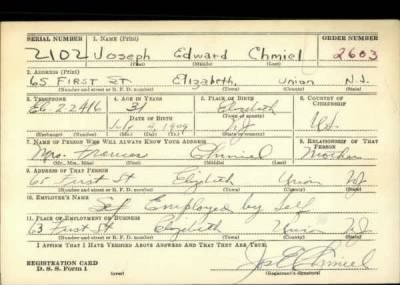 SERIAL NUMBER 1. NAME (Print) ORDER NUMBER
2102 Joseph Edward Chmiel 2603
(First) (Middle) (Last)
2. ADDRESS (Print)
65 FIRST ST Elizabeth, Union N.J.
(Number and street or R. F. D. number) (Town) (County) (State)
3. TELEPHONE 4. AGE IN YEARS 5. PLACE OF BIRTH 6. COUNTRY OF CITIZENSHIP
EL 22416 31 Elizabeth
DATE OF BIRTH (Town or county)
1909 NJ U.S.
(Exchange) (Number) (Mo.) (Day) (Yr.) (State or country)
7. NAME OF PERSON WHO WILL ALWAYS KNOW YOUR ADDRESS 8. RELATIONSHIP OF THAT PERSON
Mrs. Frances Chmiel Mother
(Mr., Mrs., Miss) (First) (Middle) (Last)
9. ADDRESS OF THAT PERSON
65 First St Elizabeth Union NJ
(Number and street or R. F. D. number) (Town) (County) (State)
10. EMPLOYER'S NAME
Self Employed by Self
11. PLACE OF EMPLOYMENT OR BUSINESS
63 First St Elizabeth Union NJ
(Number and street or R. F. D. number) (Town) (County) (State)
I AFFIRM THAT I HAVE VERIFIED ABOVE ANSWERS AND THAT THEY ARE TRUE.
REGISTRATION CARD
D. S. S. Form 1 (over) (Registrant's signature)